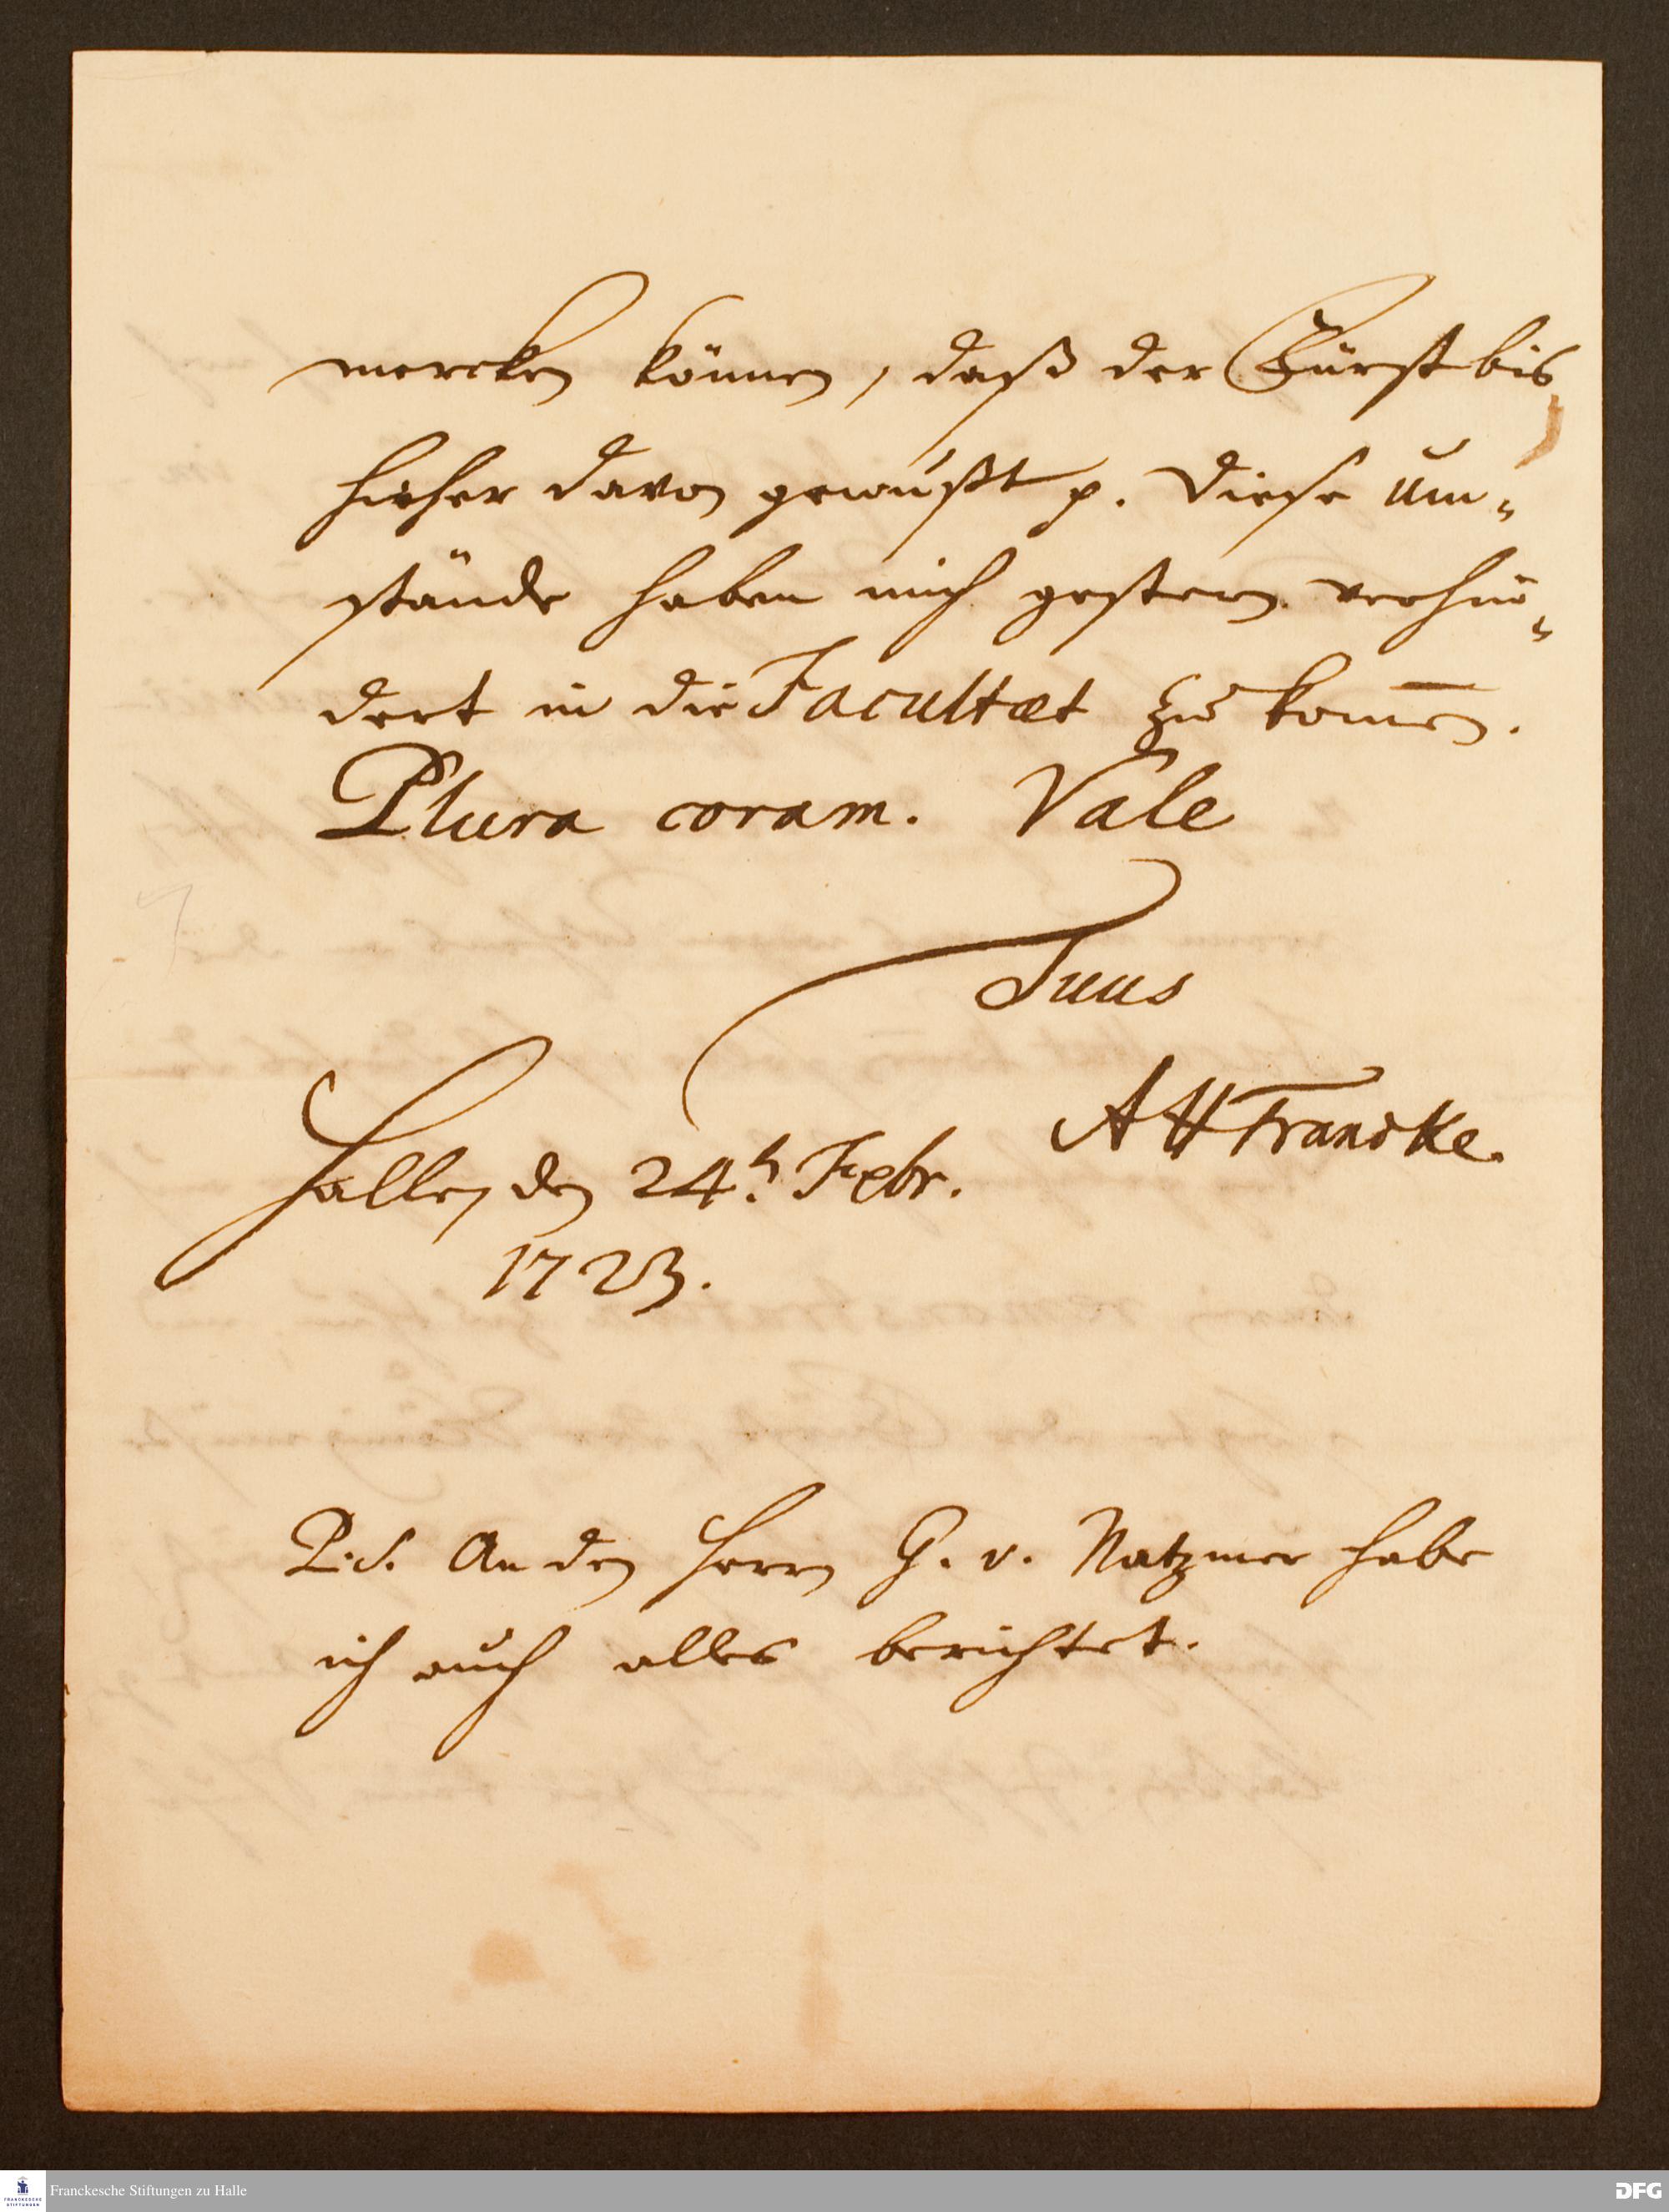 mercken können, daß der Fürst bis
hieher davon gewußt p. Diese Um„
stände haben mich gestern verhin„
dert in die Facultæt zu kom̅en.
Plura coram. Vale
Tuus
AHFrancke.
Halle, den 24t. Febr.
1723.
P.S. An den Herrn G. v. Natzmer habe
ich auch alles berichtet.
FRANCKESCHE
STIFTUNGEN
Franckesche Stiftungen zu Halle
DFG